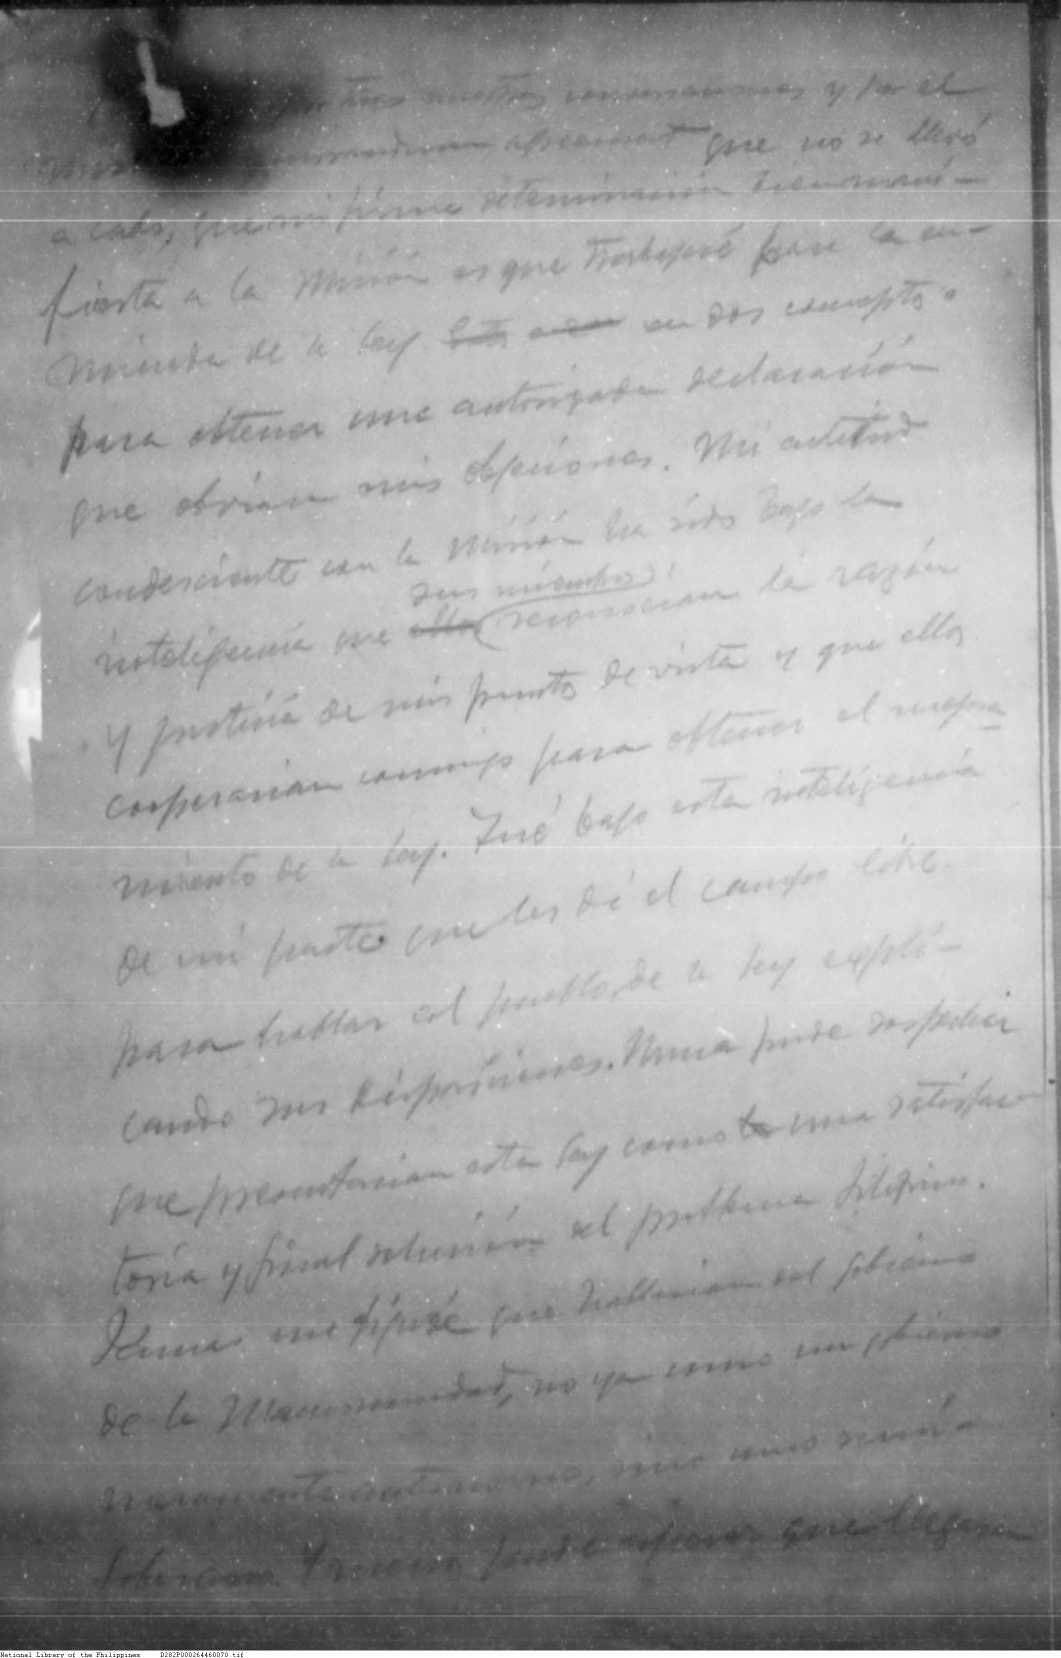 nuestras conversaciones y por el
memorandum agreement que no se llevó
a cabo, que mi firme determinación bien mani-
fiesta a la Misión es que trabajaré para la en-
mienda de la ley en dos conceptos o
para obtener una autorizada declaración
que obvian mis objeciones. Mi actitud
condesciente con la Misión ha sido bajo la
inteligencia que sus miembros reconocian la razón
y justicia de mis puntos de vista y que ellos
cooperarian conmigo para obtener el mejora
miento de la ley. Fué bajo esta inteligencia
de mi parte que les dí el campo libre
para hablar al pueblo de la ley expli-
cando sus disposiciones. Nunca pude sospechar
que presentarian esta ley como una satisfac-
toria y final solución del problema filipino.
Jamas me figuré que hablarian del gobierno
de la Mancomunidad, no ya como un gobierno
meramente autonomo, sino como semi-
soberano. Y nunca pude esperar que llegaran
National Library of the Philippines D282P000264460070.tif